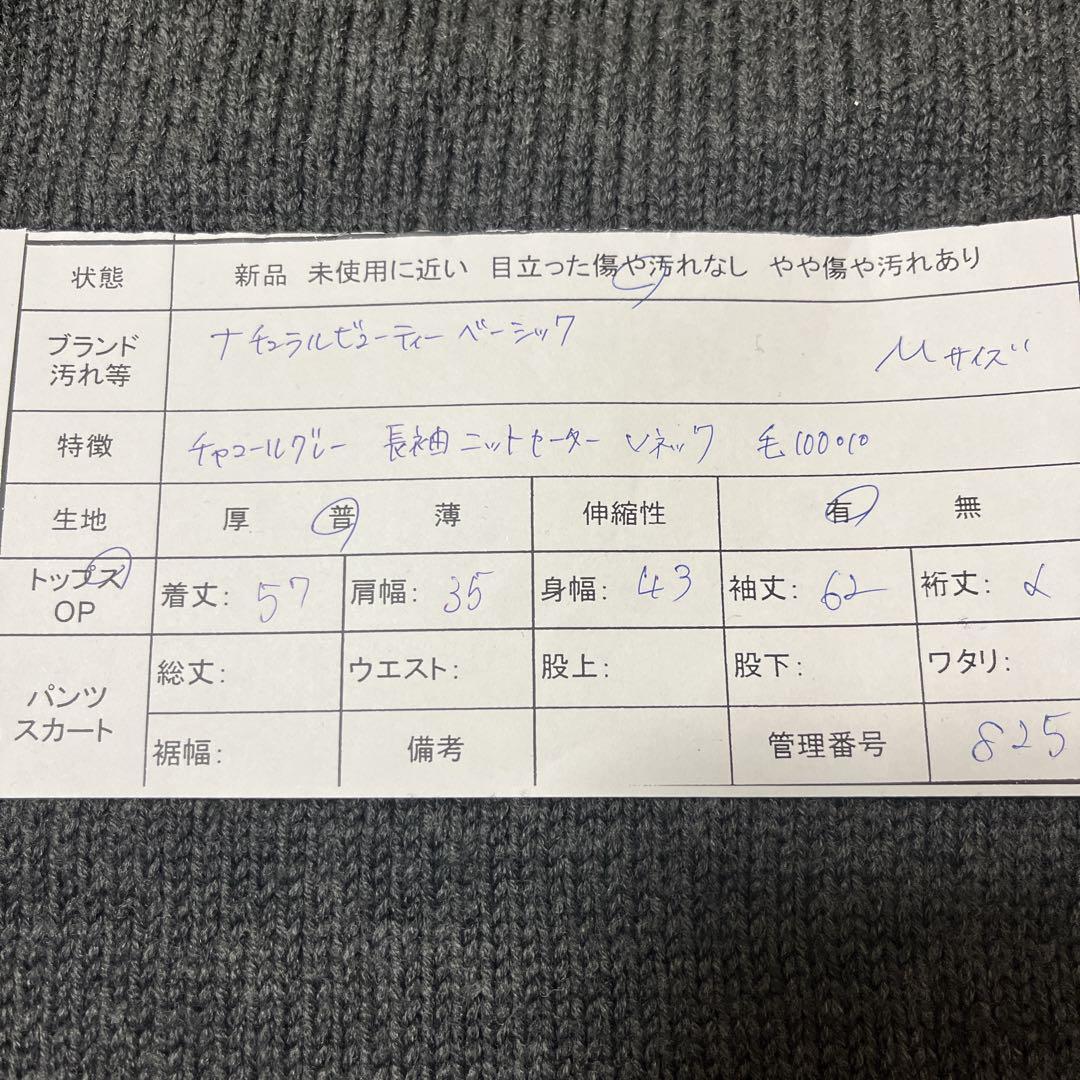 状態 新品 未使用に近い 目立った傷や汚れなし やや傷や汚れあり
ブランド 汚れ等 ナチュラルビューティーベーシック Mサイズ
特徴 チャコールグレー 長袖ニットセーター Vネック 毛100%
生地 厚 普 薄 伸縮性 有 無
トップス OP 着丈: 57 肩幅: 35 身幅: 43 袖丈: 62 裄丈:
パンツ スカート 総丈: ウエスト: 股上: 股下: ワタリ:
裾幅: 備考 管理番号 825